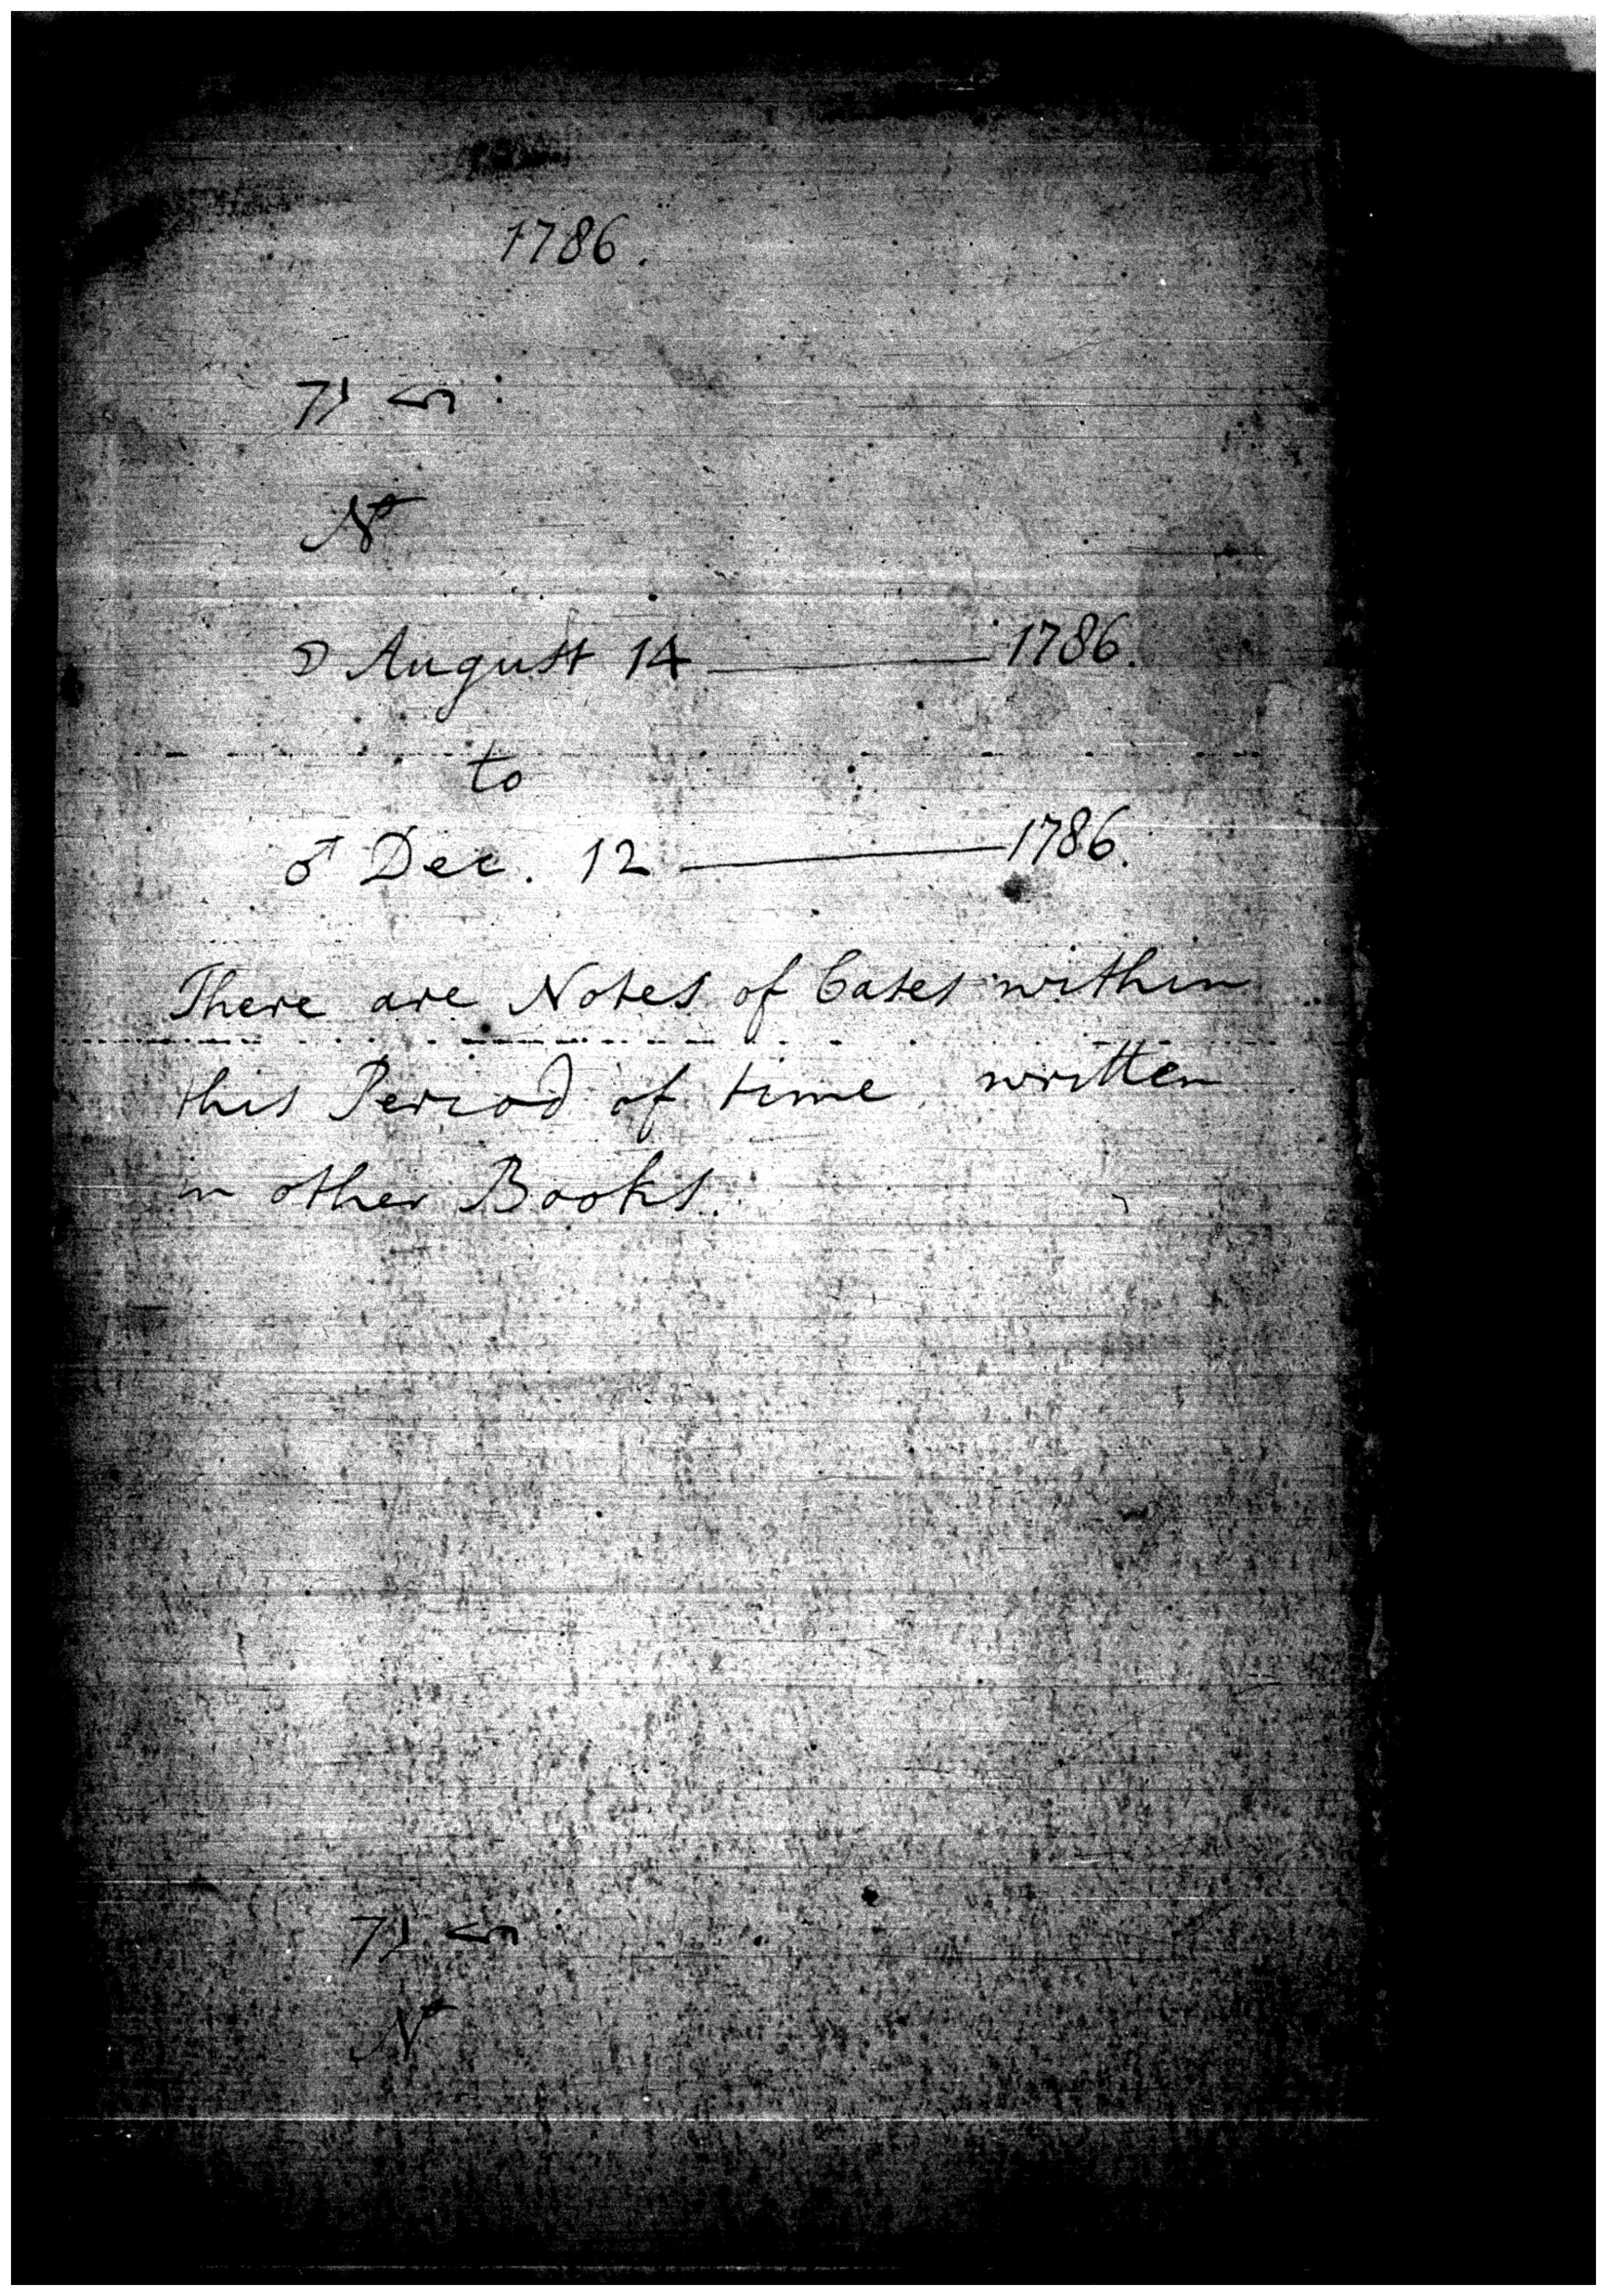 1786.
☽ August 14 — 1786.
to
♂ Dec. 12 — 1786.
There are Notes of Cases within
this Period of time, written
in other Books.